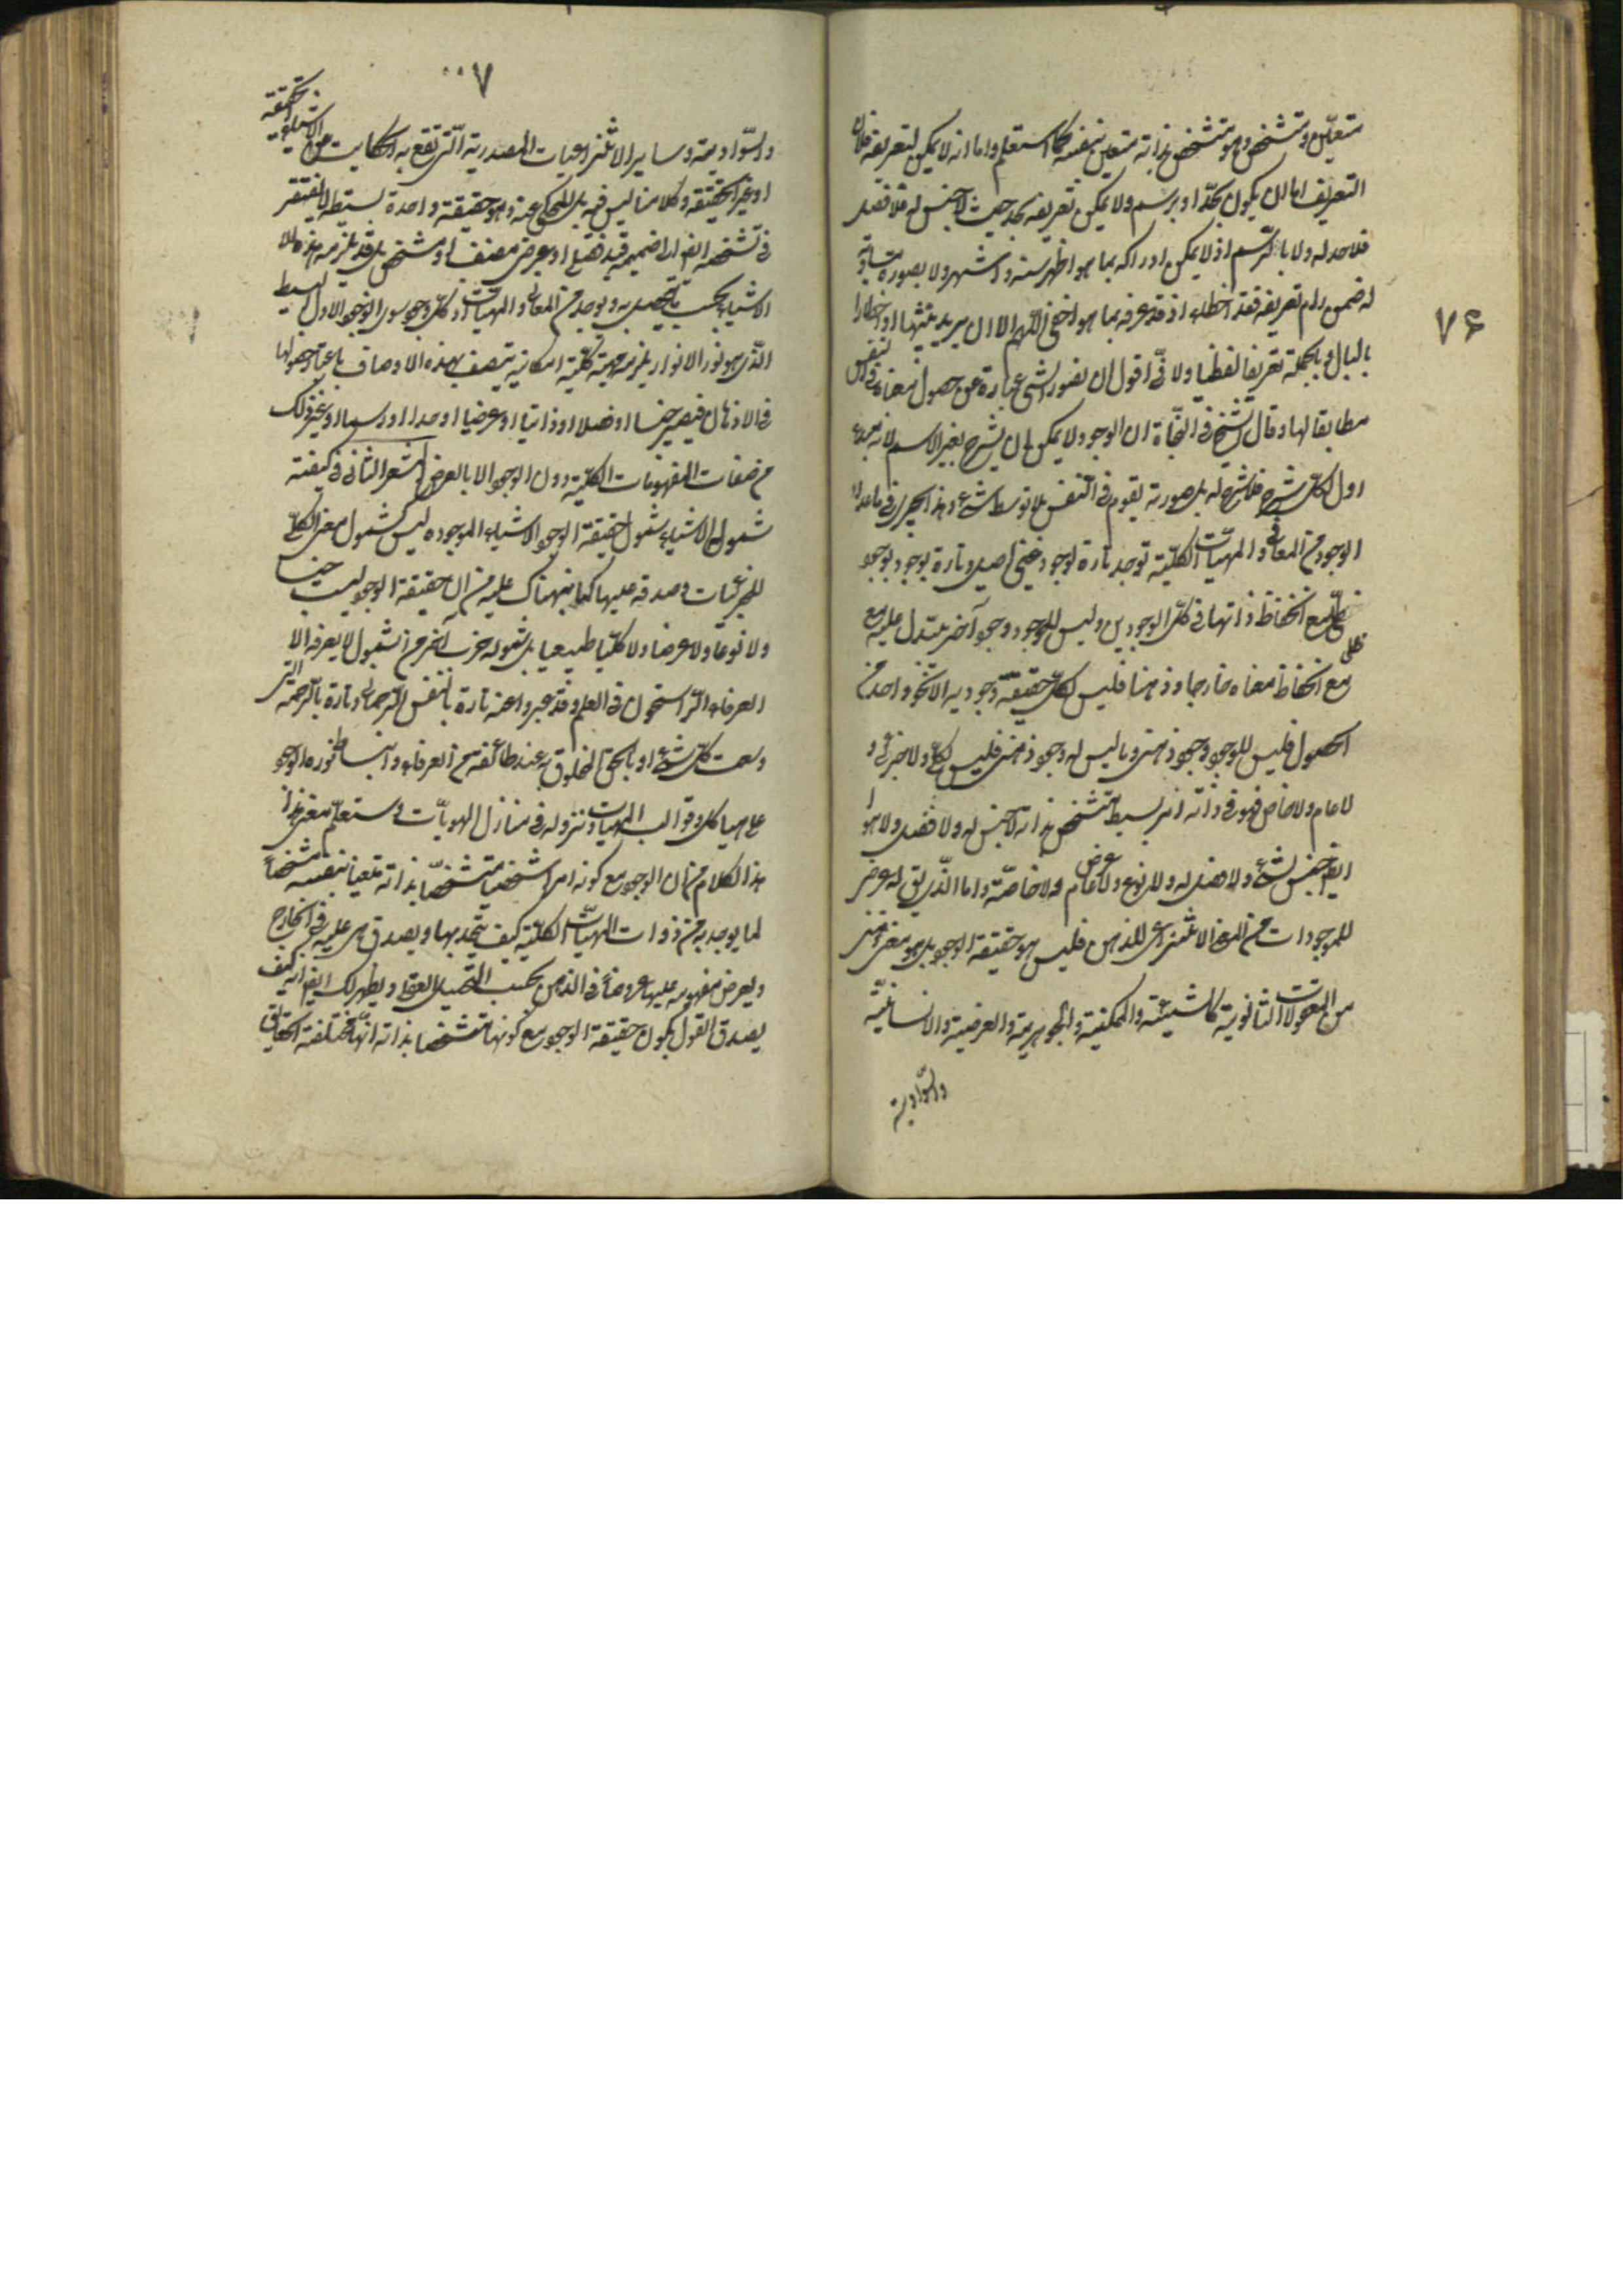 ۷۶
متعين ومتشخص وهو متشخص بذاته متعين بنفسه كما ستعلم واما انه لا يمكن تعريفه فلان
التعريف اما ان يكون بحد او برسم ولا يمكن تعريفه بحد حيث لا جنس له فلا فصل
فلا حد له ولا بالرسم اذ لا يمكن ادراكه بما هو اظهر منه واشهر ولا بصورة مساوية
له فمن رام تعريفه فقد اخطاء اذ قد عرفه بما هو اخفى اللهم الا ان يريد تنبيها او اخطارا
بالبال وبالجملة تعريفا لفظيا ولانى اقول ان تصور الشى عبارة عن حصول معناه فى النفس
مطابقا لها وقال الشيخ فى النجاة ان الوجود لا يمكن ان يشرح بغير الاسم لانه مبدء
اول لكل شرح فلا شرح له بل صورته يقوم فى النفس بلا توسط شىء وهذا يجرى فى ما عدا
الوجود من المعانى والمهيات الكلية توجد تارة بوجود عينى اصيل وتارة بوجود بوجود
ظلى مع انحفاظ ذاتها فى كلى الوجودين وليس للوجود وجود آخر يتبدل عليه مع
ظلى
مع انحفاظ معناه خارجا وذهنا فليس لكل حقيقة وجودية الا نحو واحد من
الحصول فليس للوجود وجود ذهنى وما ليس له وجود ذهنى فليس بكلى ولا جزئى و
لا عام ولا خاص فهو فى ذاته امر بسيط متشخص بذاته لا جنس له ولا فصل ولا هو
ايضا جنس لشىء ولا فصل له ولا نوع ولا عرض عام ولا خاصة واما الذى يق له عرض
للموجودات من المعنى الانتزاعى للذهن فليس هو حقيقة الوجود بل هو معنى ذهنى
من المعقولات الثانوية كالشيئية والممكنية والجوهرية والعرضية والانسانية
والسوادية
۷۰۰
والسوادية وساير الانتزاعيات المصدرية التى تقع به الحكاية عن الاشياء الحقيقية
او غير الحقيقة وكلامنا ليس فيه بل المحكى عنه وهو حقيقة واحدة بسيطة لا يفتقر
فى تشخصه الى ضميمة قيد فصلى او عرض مصنف او مشخص بل قد يلزمه هذه
الاشياء بحسب ما يتحصل به ويوجد من المعانى والمهيات اذ كل وجود سوى الوجود الاول البسيط
الذى هو نور الانوار يلزمه مهية كلية امكانية يتصف بهذه الاوصاف باعتبار حصولها
فى الاذهان فيصير جنسا او فصلا او ذاتيا او عرضيا او حدا او رسما او غير ذلك
من صفات المفهومات الكلية دون الوجود الا بالعرض المشعر الثانى فى كيفية
شموله للاشياء شمول حقيقة الوجود الاشياء الموجوده ليس كشمول معنى الكلى
للجزئيات وصدقه عليها كما نبهناك عليه من ان حقيقة الوجود ليست جنسا
ولا نوعا ولا عرضا ولا كليا طبيعيا بل شموله ضرب آخر من الشمول لا يعرفه الا
العرفاء الراسخون فى العلم وقد عبروا عنه تارة بالنفس الرحمانى وتارة بالرحمة التى
وسعت كل شىء او بالحق المخلوق به عند طائفة من العرفاء وانبساط نور الوجود
على هياكل وقوالب المهيات ونزوله فى منازل الهويات وستعلم معنى هذا
هذا الكلام من ان الوجود مع كونه امرا شخصيا متشخصا بذاته متعينا بنفسه مشخصا
لما يوجد به من ذوات المهيات الكلية كيف يتحد بها ويصدق هى عليه فى الخارج
ويعرض مفهومه عليها عروضا فى الذهن بحسب التحليل العقلى ويظهر لك ايضا انه كيف
يصدق القول بكون حقيقة الوجود مع كونها متشخصا بذاته انها مختلفة الحقايق